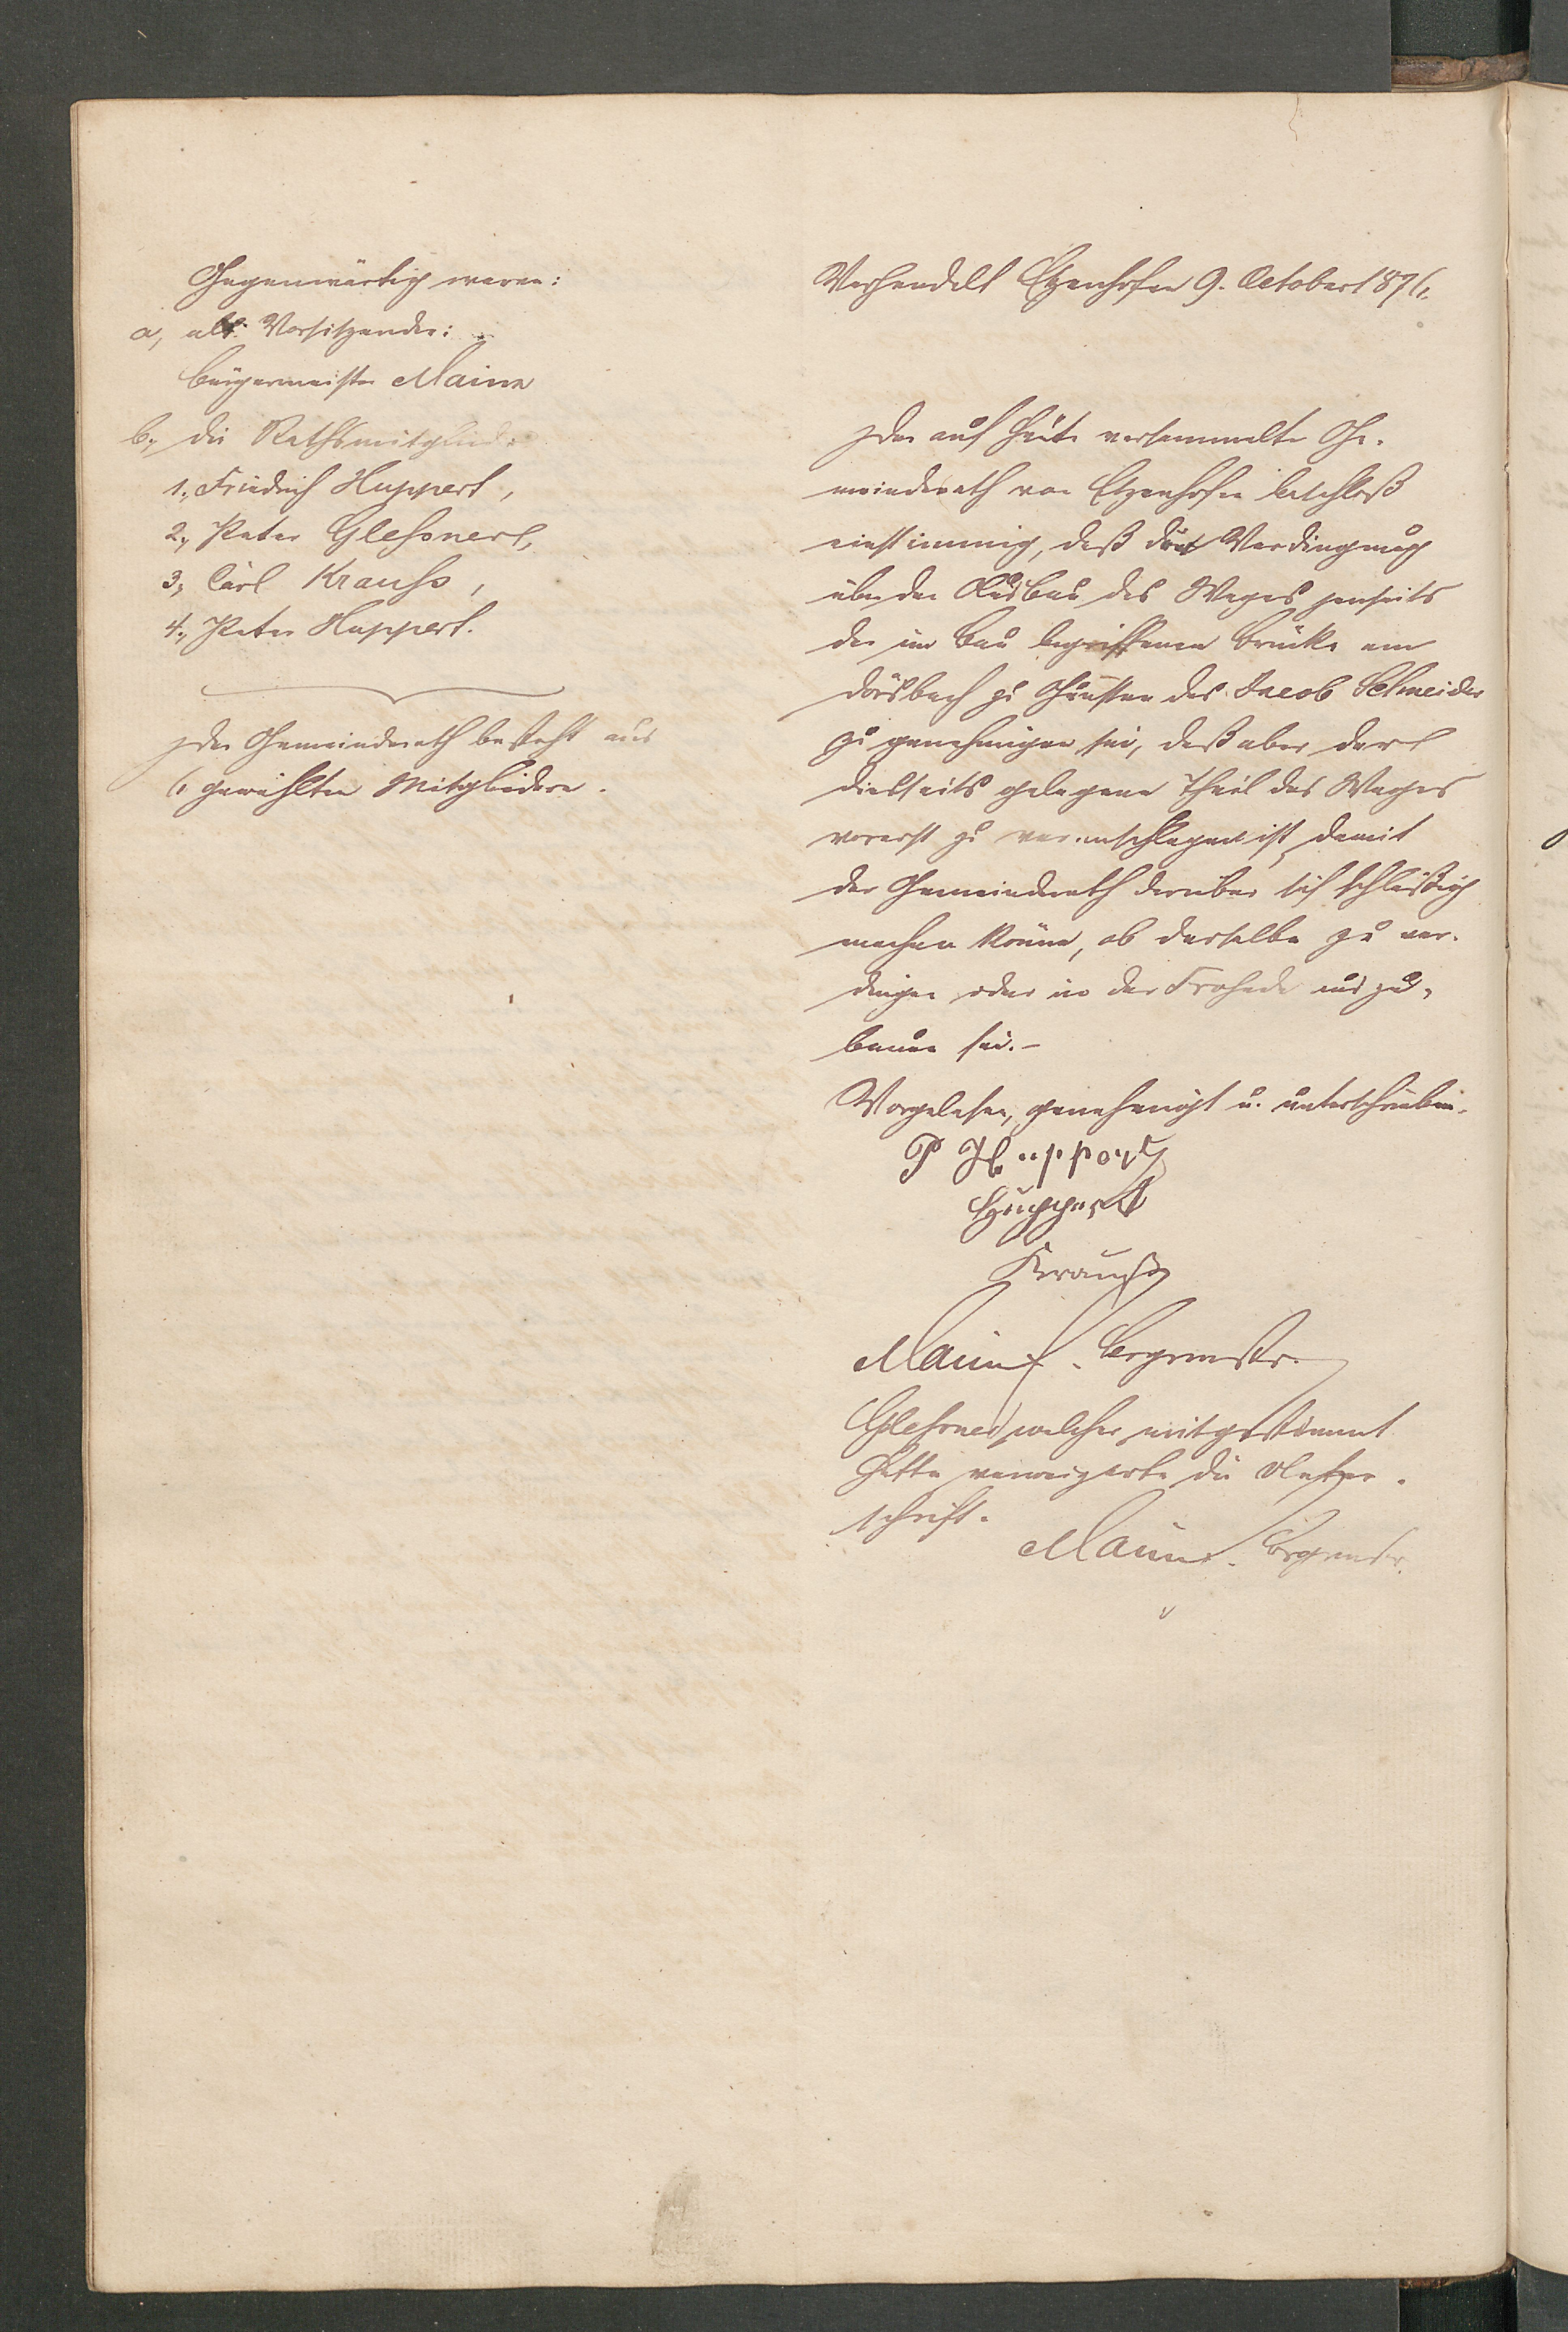 Gegenwärtig waren:
a, als Vorsitzender:
Bürgermeister Maine
b., die Rathsmitglieder
1., Friedrich Huppert,
2., Peter Gleßner,
3., Carl Krauß,
4., Peter Huppert.
Der Gemeinderath besteht aus
6 gewählten Mitgliedern.
Verhandelt Etzenhofen 9. October 1876.
Der auf heute versammelte Ge-
meinderath von Etzenhofen beschloß
einstimmig, daß die Verdingung
über den Ausbau des Weges jenseits
der im Bau begriffenen Brücke am
Dörsbach zu Gunsten des Jacob Schneider
zu genehmigen sei, daß aber der
diesseits gelegene Theil des Weges
vorerst zu veranschlagen ist, damit
der Gemeinderath darüber sich schlüßig
machen könne, ob derselbe zu ver-
dingen oder in der Frohnde auszu-
bauen sei. –
Vorgelesen, genehmigt u. unterschrieben.
P Huppert
Huppert
Krauß
Maine. Brgrmstr.
Gleßner welcher mitgestimmt
hatte verweigerte die Unter-
schrift.
Maine. Brgrmstr.